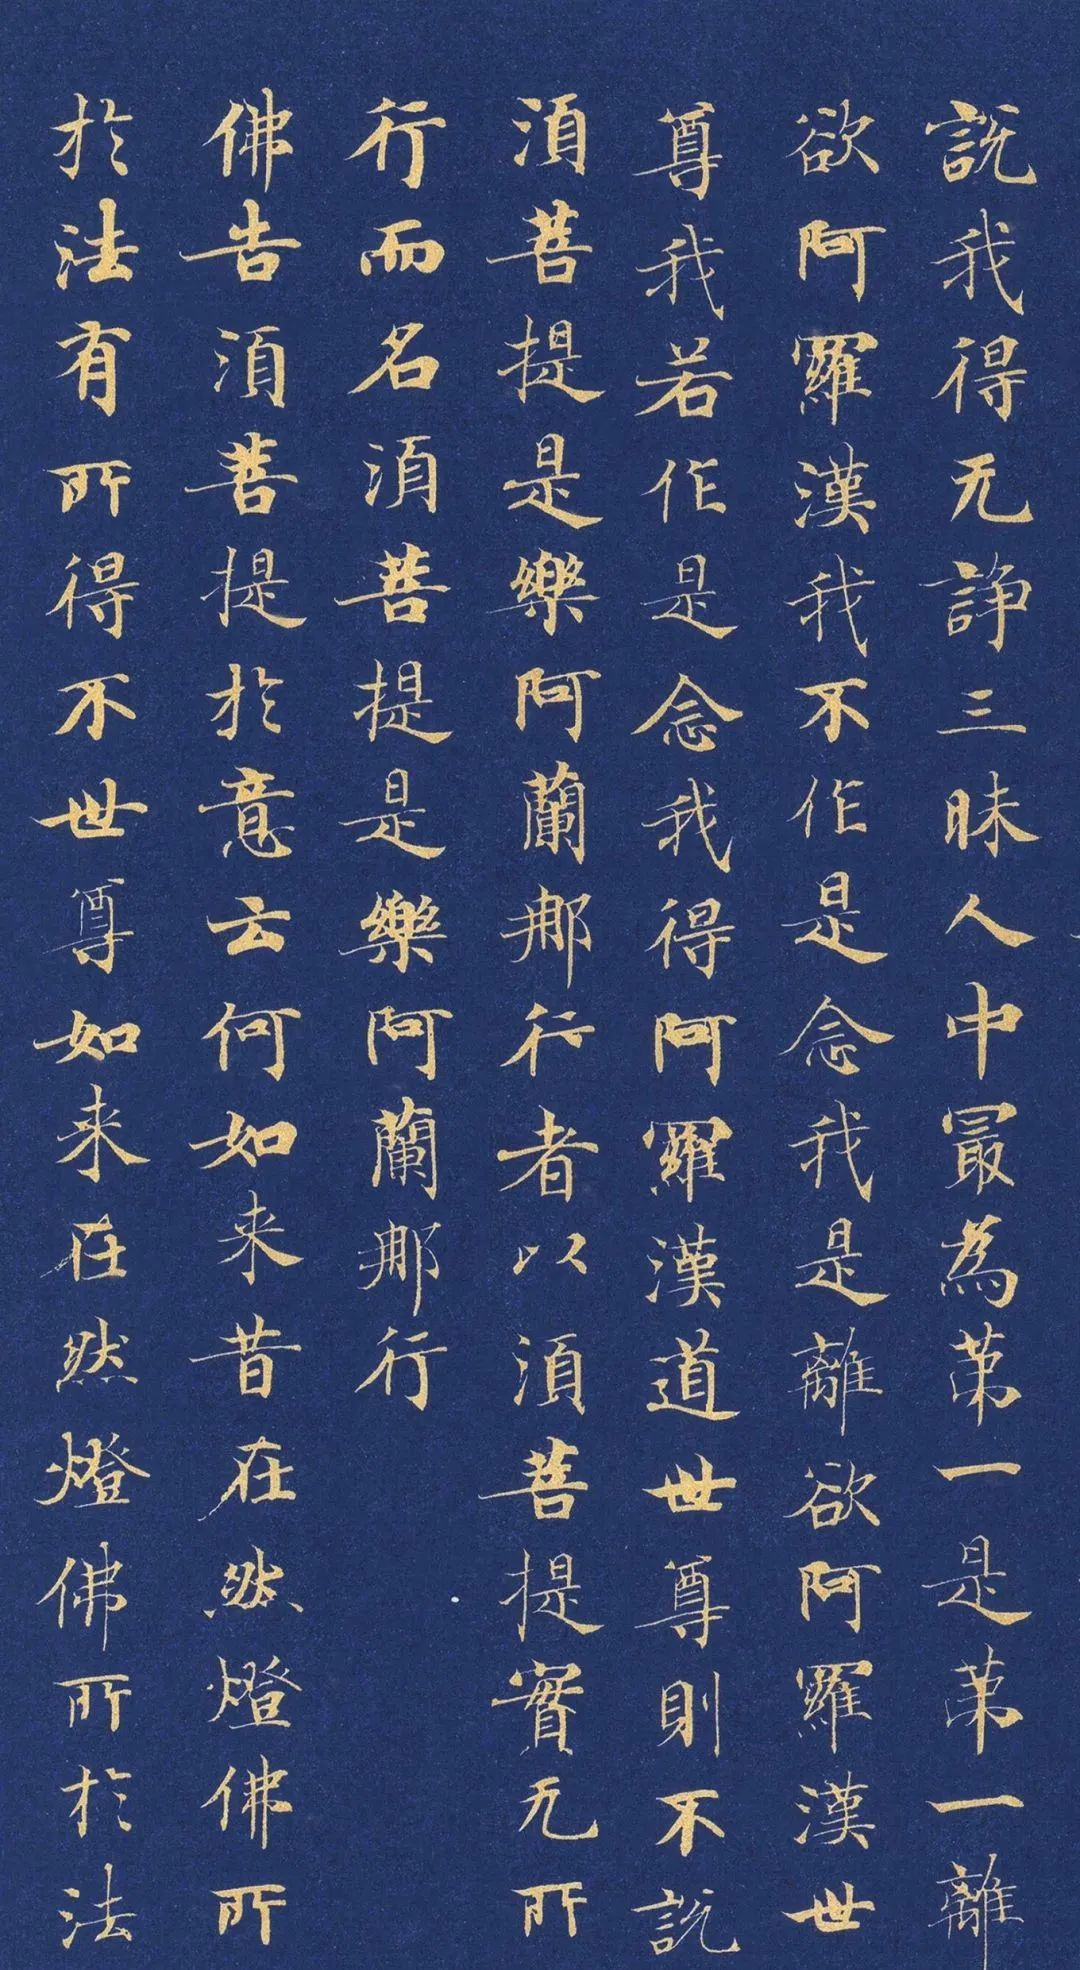 説我得无諍三昧人中最為苐一是苐一離
欲阿羅漢我不作是念我是離欲阿羅漢世
尊我若作是念我得阿羅漢道世尊則不説
湏菩提是樂阿蘭那行者以湏菩提實无所
行而名湏菩提是樂阿蘭那行
佛告湏菩提於意云何如来昔在然燈佛所
於法有所得不世尊如来在然燈佛所於法